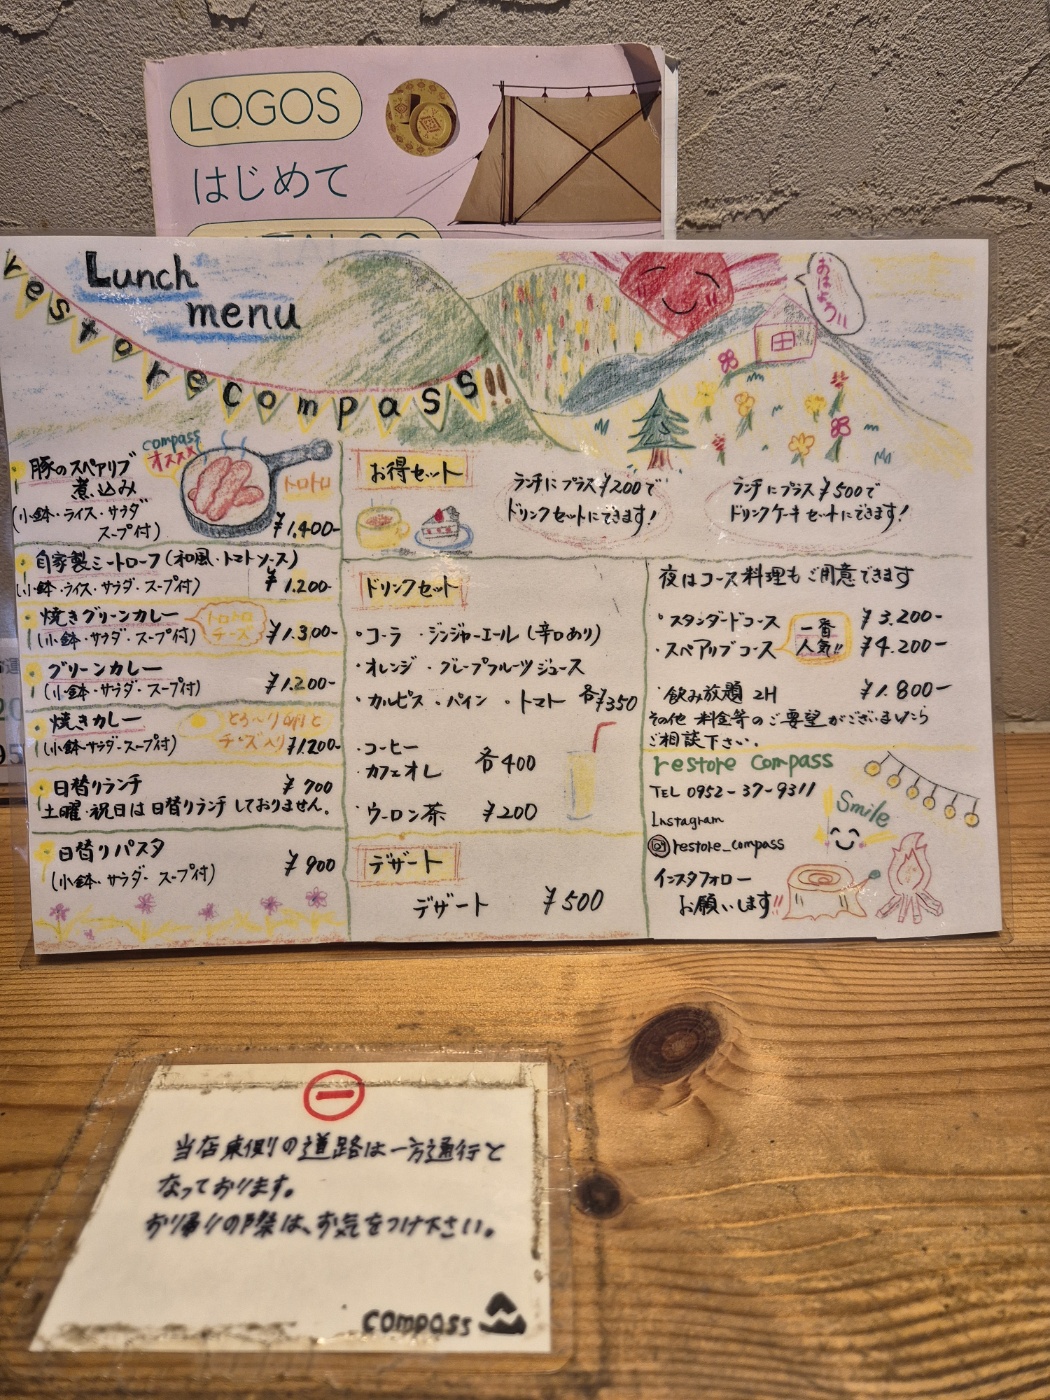 LOGOS
はじめて
Lunch
menu
restore compass!!
おはよう!!
豚のスペアリブ
煮込み
(小鉢・ライス・サラダ
スープ付)
compass
オススメ
トロトロ
¥1,400-
自家製ミートローフ(和風・トマトソース)
(小鉢・ライス・サラダ・スープ付)
¥1.200-
焼きグリーンカレー
(小鉢・サラダ・スープ付)
トロトロ
チーズ
¥1.300-
グリーンカレー
(小鉢・サラダ・スープ付)
¥1.200-
焼きカレー
(小鉢・サラダ・スープ付)
とろ〜り卵と
チーズ入り
¥1.200-
日替りランチ
¥700
土曜・祝日は日替りランチしておりません。
日替りパスタ
(小鉢・サラダ・スープ付)
¥900
お得セット
ランチにプラス¥200で
ドリンクセットにできます!
ランチにプラス¥500で
ドリンクケーキセットにできます!
ドリンクセット
・コーラ ・ジンジャーエール(辛口あり)
・オレンジ ・グレープフルーツジュース
・カルピス ・パイン ・トマト 各¥350
・コーヒー
・カフェオレ
各400
・ウーロン茶 ¥200
デザート
デザート ¥500
夜はコース料理もご用意できます
・スタンダードコース ¥3.200-
・スペアリブコース ¥4.200-
一番
人気!!
・飲み放題 2H ¥1.800-
その他 料金等のご要望がございましたら
ご相談下さい。
restore compass
TEL 0952-37-9311
Instagram
restore_compass
インスタフォロー
お願いします!!
Smile
当店東側の道路は一方通行と
なっております。
お帰りの際は、お気をつけ下さい。
compass